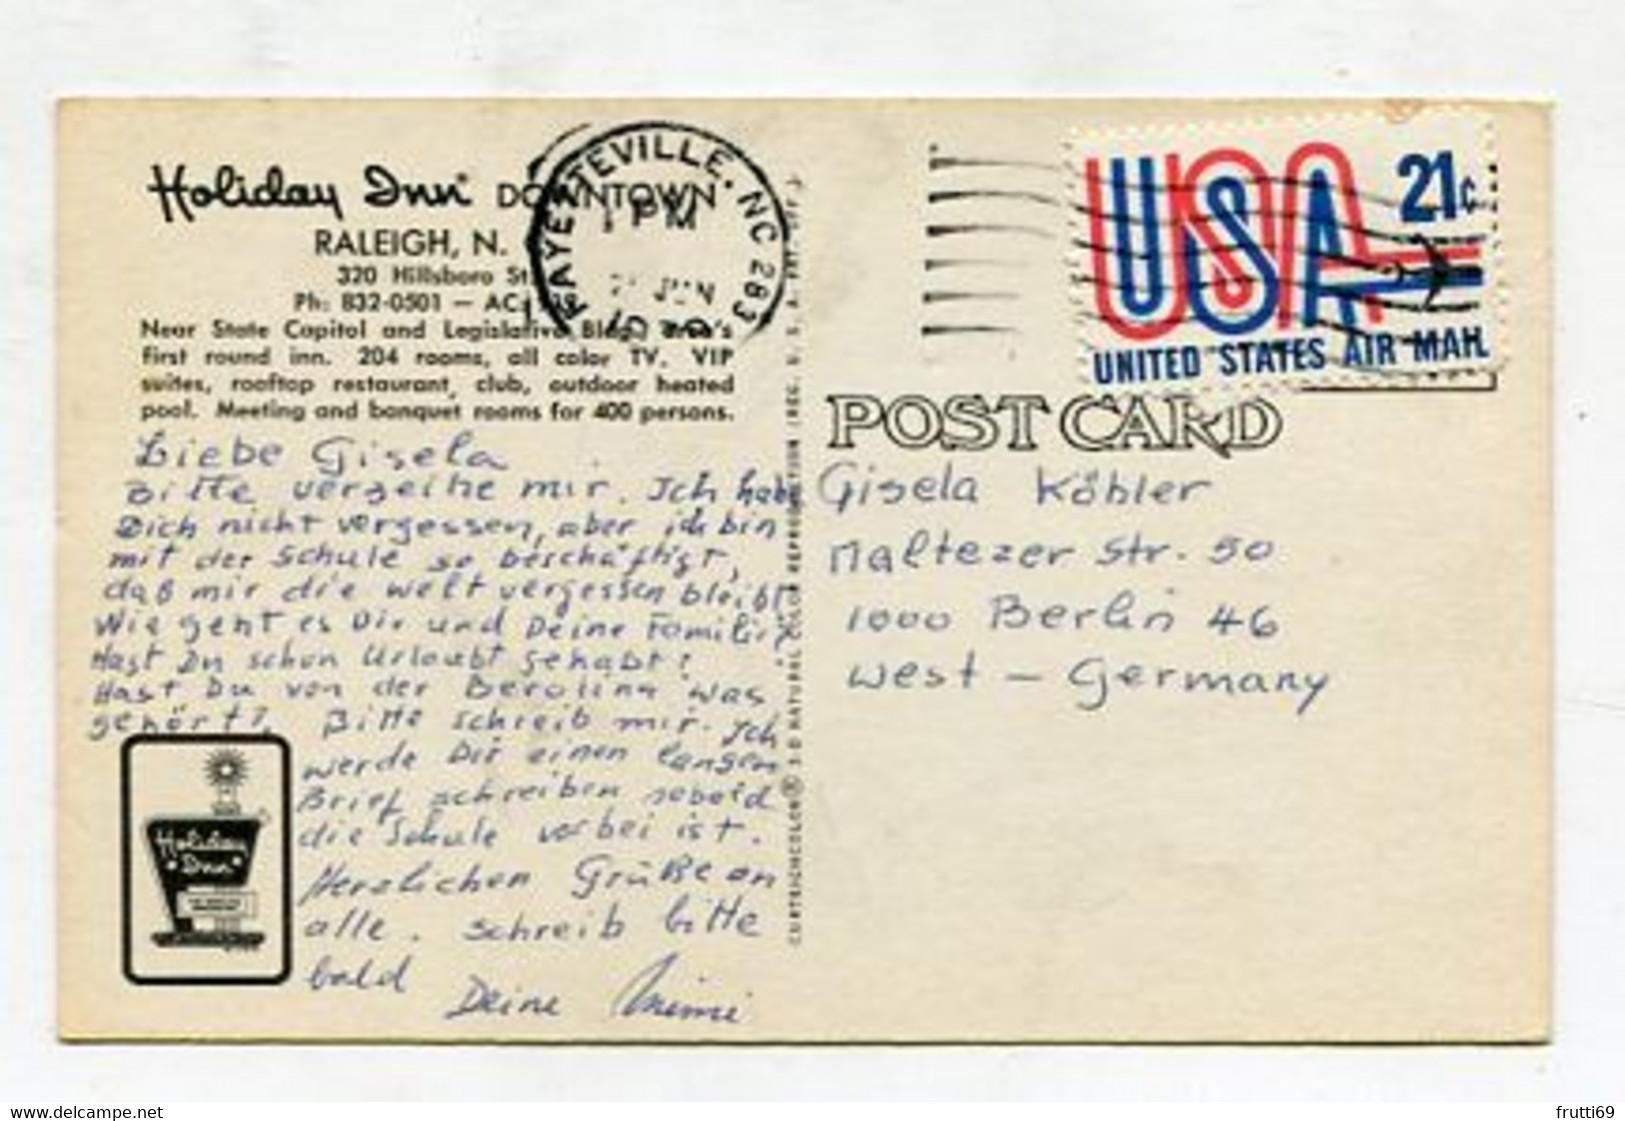 Holiday Inn DOWNTOWN
RALEIGH, N.
320 Hillsboro St.
Ph: 832-0501 — AC:
Near State Capitol and Legislative Bldg. Area's
first round inn. 204 rooms, all color TV. VIP
suites, rooftop restaurant, club, outdoor heated
pool. Meeting and banquet rooms for 400 persons.
Liebe Gisela
Bitte verzeihe mir. Ich habe
Dich nicht vergessen, aber ich bin
mit der Schule so beschäftigt,
daß mir die Welt vergessen bleibt.
Wie geht es Dir und Deine Familie?
Hast Du schon Urlaubt gehabt?
Hast Du von der Berolina was
gehört? Bitte schreib mir. Ich
werde Dir einen langen
Brief schreiben sobald
die Schule vorbei ist.
Herzlichen Grüße an
alle. schreib bitte
bald Deine Mimi
Holiday Inn
FAYETTEVILLE, NC 283
PM
JUN
CURTEICHCOLOR® 3-D NATURAL COLOR REPRODUCTION (REG. U. S. A. PAT. OFF.)
USA 21c
UNITED STATES AIR MAIL
POST CARD
Gisela Köhler
Maltezer Str. 50
1000 Berlin 46
West – Germany
frutti69
www.delcampe.net